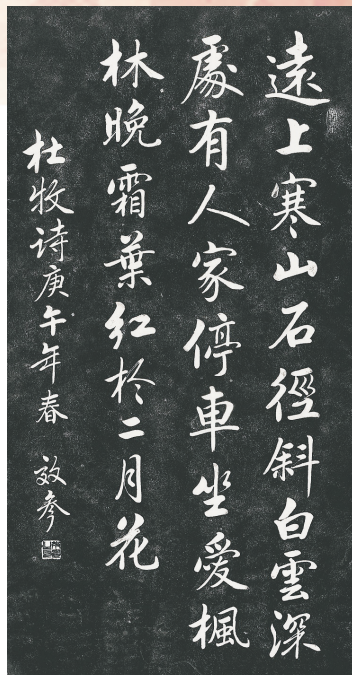 遠上寒山石徑斜白雲深
處有人家停車坐愛楓
林晚霜葉紅於二月花
杜牧诗庚午年春 效參